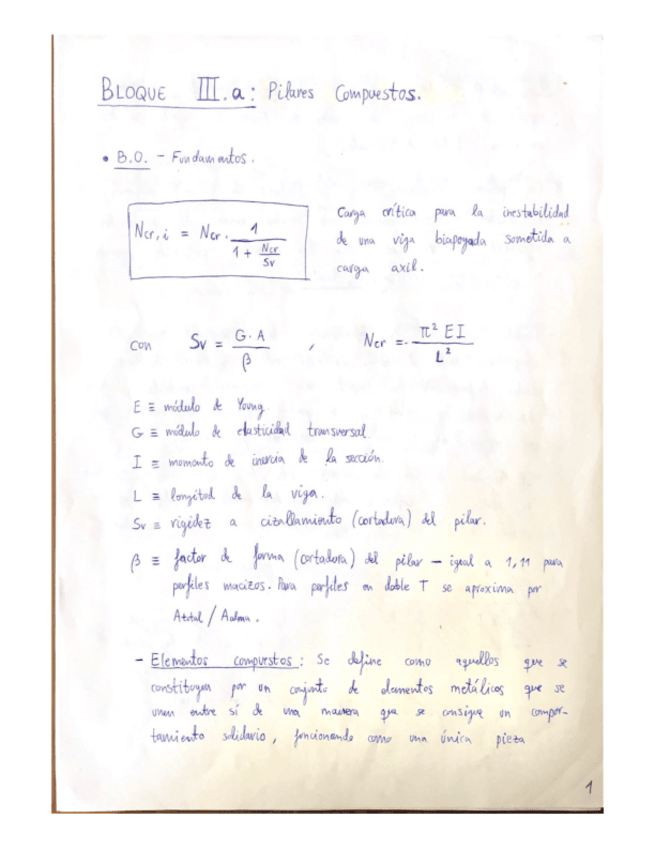 BLOQUE III.a: Pilares Compuestos.
• B.0. - Fundamentos.
Ncr,i = Ncr · 1 / (1 + Ncr/Sv)
Carga crítica para la inestabilidad
de una viga biapoyada sometida a
carga axil.
con Sv = G·A / β , Ncr = π² EI / L²
E ≡ módulo de Young.
G ≡ módulo de elasticidad transversal.
I ≡ momento de inercia de la sección.
L ≡ longitud de la viga.
Sv ≡ rigidez a cizallamiento (cortadura) del pilar.
β ≡ factor de forma (cortadura) del pilar - igual a 1,11 para
perfiles macizos. Para perfiles en doble T se aproxima por
Atotal / Aalma.
- Elementos compuestos: Se define como aquellos que se
constituyen por un conjunto de elementos metálicos que se
unen entre sí de una manera que se consigue un compor-
tamiento solidario, funcionando como una única pieza
1